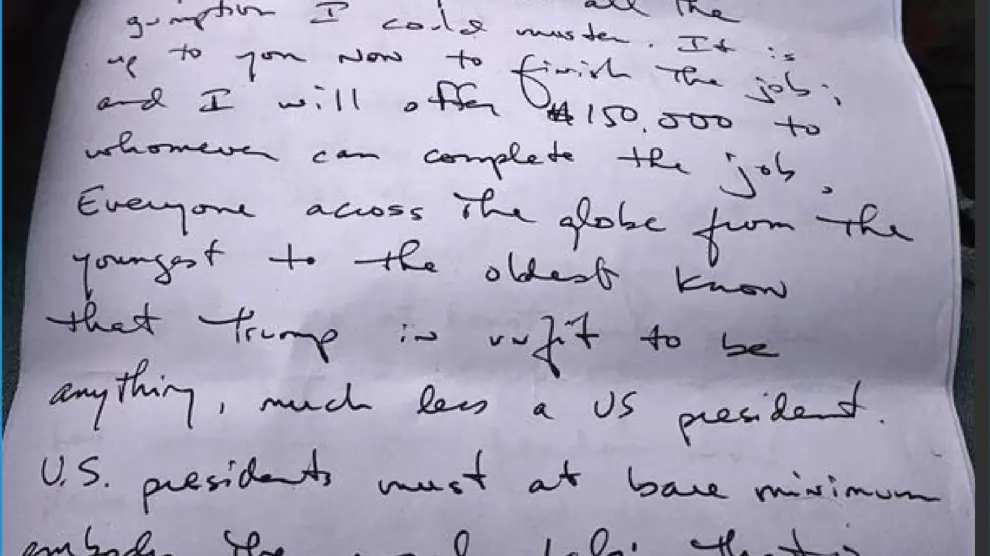 gumption I could all the
muster. It is
up to you now to finish the job;
and I will offer $150,000 to
whomever can complete the job.
Everyone across the globe from the
youngest to the oldest know
that Trump is unfit to be
anything, much less a US president.
U.S. presidents must at bare minimum
embody the that is